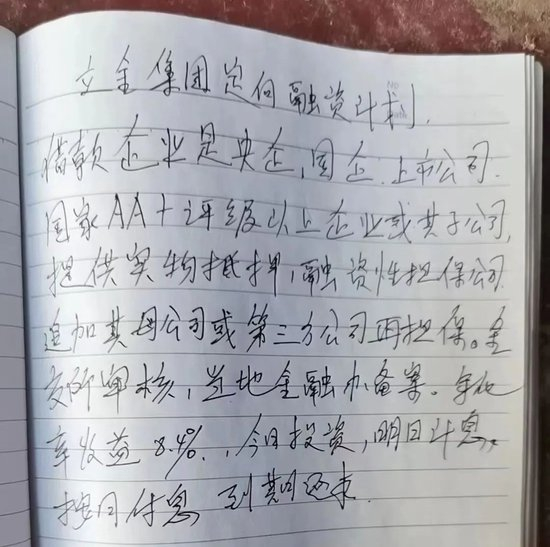 立金集团定向融资计划.
借款企业是央企,国企.上市公司.
国家AA+评级以上企业或其子公司,
提供实物抵押,融资性担保公司
追加其母公司或第三方公司再担保。金
交所审核,当地金融办备案。年化
率收益8.4%.,今日投资,明日计息,
按月付息,到期还本.